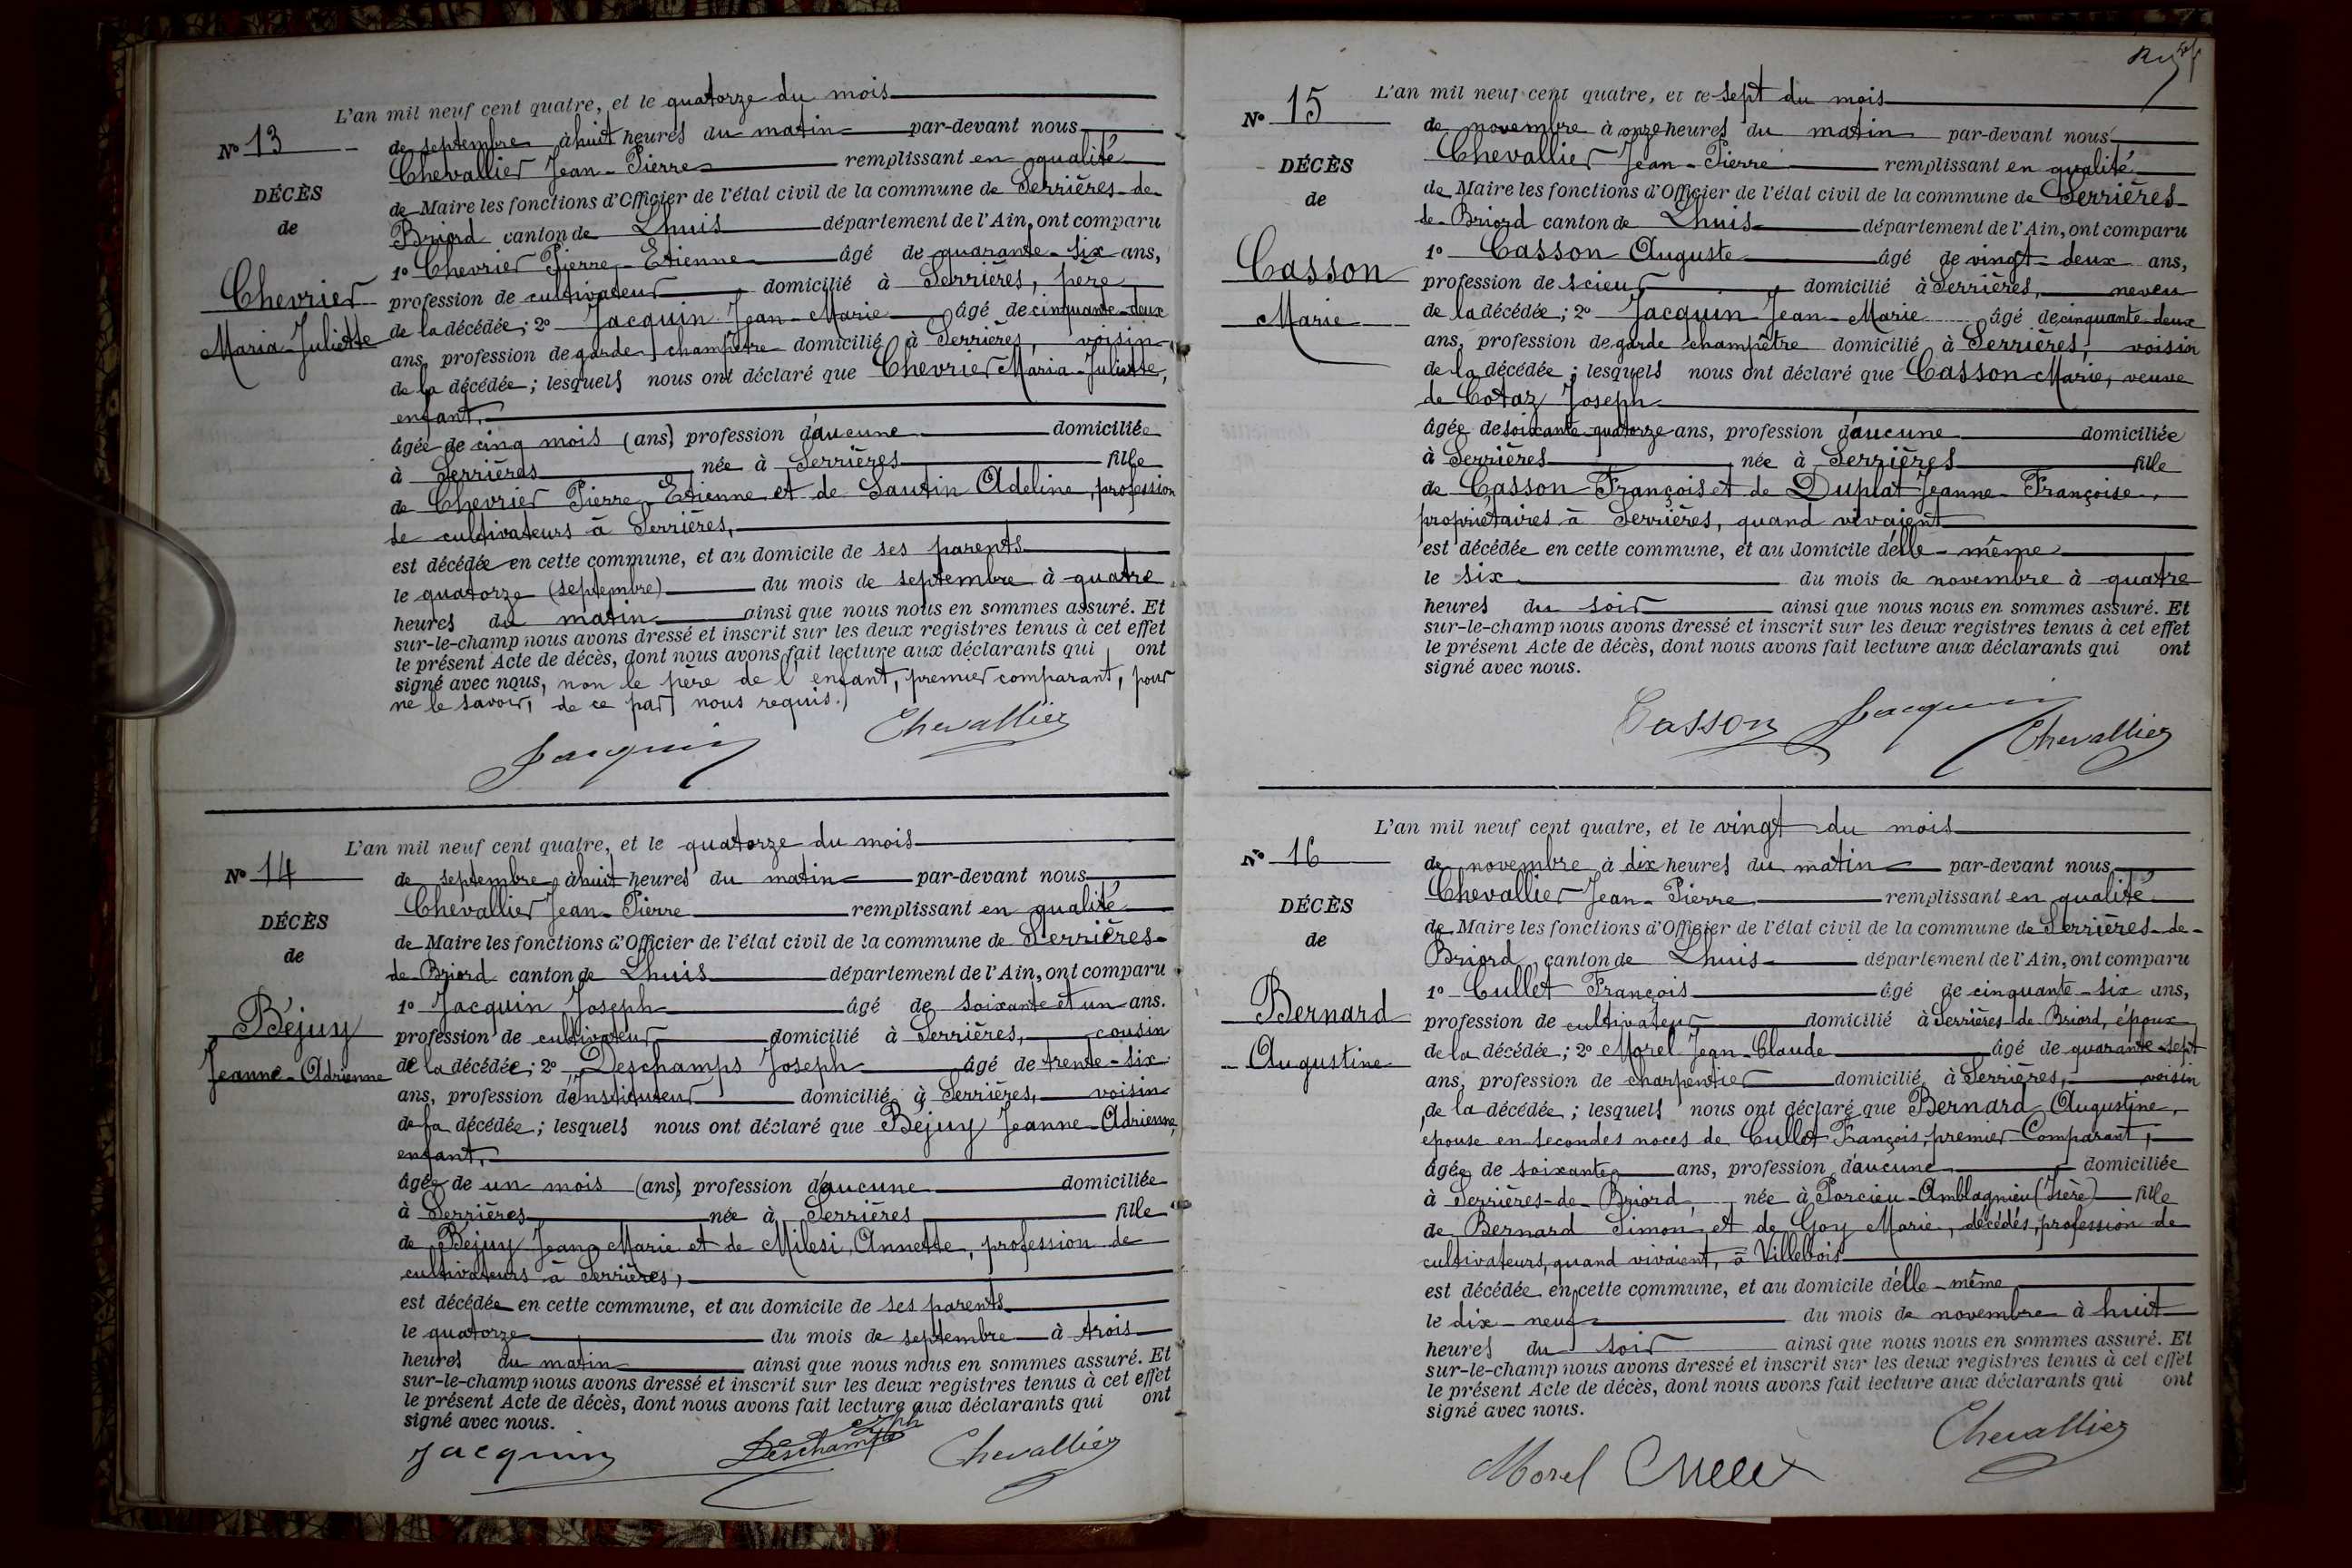 L'an mil neuf cent quatre, et le quatorze du mois
N° 13
de septembre à huit heures du matin par-devant nous
Chevallier Jean-Pierre remplissant en qualité
DÉCÈS
de Maire les fonctions d'Officier de l'état civil de la commune de Serrières-de-
de
Briord canton de Lhuis département de l'Ain, ont comparu
1° Chevrier Pierre-Etienne âgé de quarante-six ans,
Chevrier
profession de cultivateur domicilié à Serrières, père
Maria-Juliette
de la décédée; 2° Jacquin Jean-Marie âgé de cinquante-deux
ans, profession de garde champêtre domicilié à Serrières, voisin
de la décédée; lesquels nous ont déclaré que Chevrier Maria-Juliette,
enfant,
âgée de cinq mois (ans) profession d'aucune domiciliée
à Serrières née à Serrières fille
de Chevrier Pierre-Etienne et de Sautin Adeline, profession
de cultivateurs à Serrières,
est décédée en cette commune, et au domicile de ses parents
le quatorze (septembre) du mois de septembre à quatre
heures du matin ainsi que nous nous en sommes assuré. Et
sur-le-champ nous avons dressé et inscrit sur les deux registres tenus à cet effet
le présent Acte de décès, dont nous avons fait lecture aux déclarants qui ont
signé avec nous, non le père de l'enfant, premier comparant, pour
ne le savoir, de ce par nous requis.
Jacquin Chevallier
L'an mil neuf cent quatre, et le quatorze du mois
N° 14
de septembre, à huit heures du matin par-devant nous
Chevallier Jean-Pierre remplissant en qualité
DÉCÈS
de Maire les fonctions d'Officier de l'état civil de la commune de Serrières-
de
de Briord canton de Lhuis département de l'Ain, ont comparu
1° Jacquin Joseph âgé de soixante et un ans.
Béjuy
profession de cultivateur domicilié à Serrières, cousin
Jeanne-Adrienne
de la décédée; 2° Deschamps Joseph âgé de trente-six
ans, profession d'Instituteur domicilié à Serrières, voisin
de la décédée; lesquels nous ont déclaré que Béjuy Jeanne-Adrienne,
enfant,
âgée de un mois (ans) profession d'aucune domiciliée
à Serrières née à Serrières fille
de Béjuy Jean-Marie et de Milesi Annette, profession de
cultivateurs à Serrières,
est décédée en cette commune, et au domicile de ses parents
le quatorze du mois de septembre à trois
heures du matin ainsi que nous nous en sommes assuré. Et
sur-le-champ nous avons dressé et inscrit sur les deux registres tenus à cet effet
le présent Acte de décès, dont nous avons fait lecture aux déclarants qui ont
signé avec nous.
Jacquin Deschamps Chevallier
L'an mil neuf cent quatre, et le sept du mois
N° 15
de novembre à onze heures du matin par-devant nous
Chevallier Jean-Pierre remplissant en qualité
DÉCÈS
de Maire les fonctions d'Officier de l'état civil de la commune de Serrières-
de
de-Briord canton de Lhuis département de l'Ain, ont comparu
1° Casson Auguste âgé de vingt-deux ans,
Casson
profession de scieur domicilié à Serrières, neveu
Marie
de la décédée; 2° Jacquin Jean-Marie âgé de cinquante-deux
ans, profession de garde champêtre domicilié à Serrières, voisin
de la décédée; lesquels nous ont déclaré que Casson Marie, veuve
de Cotaz Joseph
âgée de soixante-quatorze ans, profession d'aucune domiciliée
à Serrières née à Serrières fille
de Casson François et de Duplat Jeanne-Françoise,
propriétaires à Serrières, quand vivaient
est décédée en cette commune, et au domicile d'elle-même
le six du mois de novembre à quatre
heures du soir ainsi que nous nous en sommes assuré. Et
sur-le-champ nous avons dressé et inscrit sur les deux registres tenus à cet effet
le présent Acte de décès, dont nous avons fait lecture aux déclarants qui ont
signé avec nous.
Casson Jacquin Chevallier
L'an mil neuf cent quatre, et le vingt du mois
N° 16
de novembre à dix heures du matin par-devant nous
Chevallier Jean-Pierre remplissant en qualité
DÉCÈS
de Maire les fonctions d'Officier de l'état civil de la commune de Serrières-de-
de
Briord canton de Lhuis département de l'Ain, ont comparu
1° Cullet François âgé de cinquante-six ans,
Bernard
profession de cultivateur domicilié à Serrières-de Briord, époux
Augustine
de la décédée; 2° Morel Jean-Claude âgé de quarante-sept
ans, profession de charpentier domicilié à Serrières, voisin
de la décédée; lesquels nous ont déclaré que Bernard Augustine,
épouse en secondes noces de Cullet François, premier Comparant,
âgée de soixante ans, profession d'aucune domiciliée
à Serrières-de-Briord, née à Porcieu-Amblagnieu (Isère) fille
de Bernard Simon, et de Goy Marie, décédés, profession de
cultivateurs, quand vivaient, à Villebois
est décédée en cette commune, et au domicile d'elle-même
le dix-neuf du mois de novembre à huit
heures du soir ainsi que nous nous en sommes assuré. Et
sur-le-champ nous avons dressé et inscrit sur les deux registres tenus à cet effet
le présent Acte de décès, dont nous avons fait lecture aux déclarants qui ont
signé avec nous.
Morel Cullet Chevallier